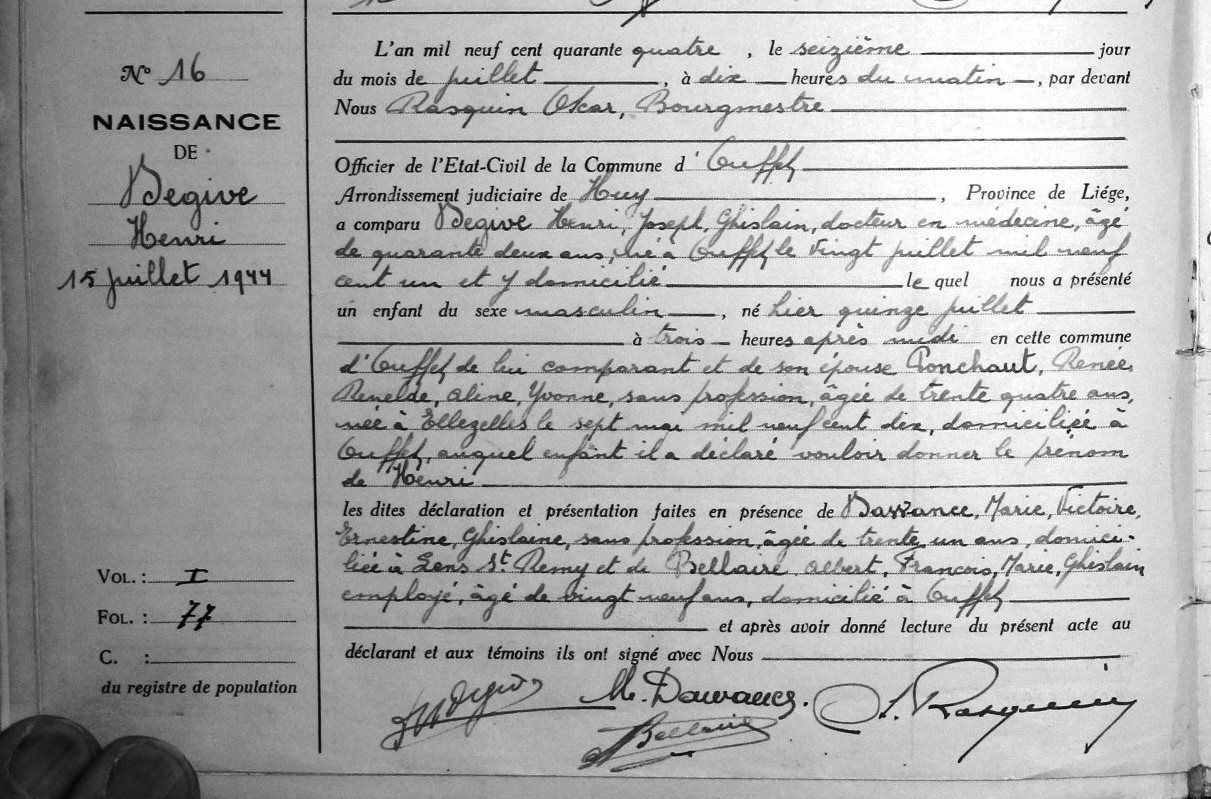 N° 16
NAISSANCE
DE
Degive
Henri
15 juillet 1944
L'an mil neuf cent quarante quatre, le seizième jour
du mois de juillet, à dix heures du matin, par devant
Nous Rasquin Oscar, Bourgmestre
Officier de l'Etat-Civil de la Commune d' Ouffet
Arrondissement judiciaire de Huy, Province de Liége,
a comparu Degive Henri, Joseph, Ghislain, docteur en médecine, âgé
de quarante deux ans, né à Ouffet le vingt juillet mil neuf
cent un et y domicilié le quel nous a présenté
un enfant du sexe masculin, né hier quinze juillet
à trois heures après midi en cette commune
d'Ouffet de lui comparant et de son épouse Ponchaut, Renée,
Renelde, Aline, Yvonne, sans profession, âgée de trente quatre ans,
née à Ellezelles le sept mai mil neuf cent dix, domiciliée à
Ouffet, auquel enfant il a déclaré vouloir donner le prénom
de Henri
les dites déclaration et présentation faites en présence de Marie, Victoire,
Ernestine, Ghislaine, sans profession, âgée de trente un ans, domici-
liée à Lens St Remy et de Bellaire Albert, François, Marie, Ghislain
employé, âgé de vingt neuf ans, domicilié à Ouffet
et après avoir donné lecture du présent acte au
déclarant et aux témoins ils ont signé avec Nous
VOL. : I
FOL. : 77
C. :
du registre de population
Degive M. Dawance. O. Rasquin
A Bellaire